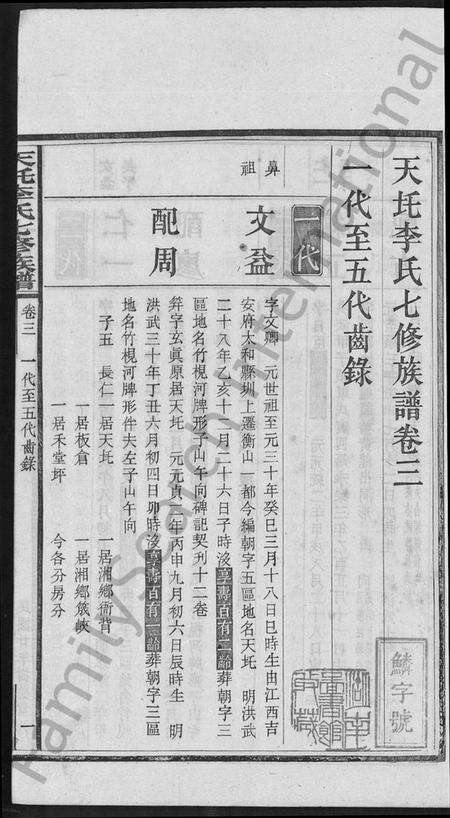 天坵李氏七修族譜卷三
一代至五代齒錄
鱗字號
湖南圖書館收藏
一代
鼻祖
文益
字文卿 元世祖至元三十年癸巳三月十八日巳時生由江西吉
安府太和縣圳上遷衡山一都今編朝字五區地名天坵 明洪武
二十八年乙亥十一月二十六日子時沒享壽百有三齡葬朝字三
區地名竹梘河牌形子山午向碑記契刋十二卷
配周
笄字玄真原居天坵 元元貞二年丙申九月初六日辰時生 明
洪武三十年丁丑六月初四日卯時沒享壽百有二齡葬朝字三區
地名竹梘河牌形件夫左子山午向
子五 長仁一居天坵 一居湘鄉衕背
一居板倉 一居湘鄉篢峽
一居禾堂坪 今各分房分
天坵李氏七修族譜 卷三 一代至五代齒錄 一
FamilySearch International